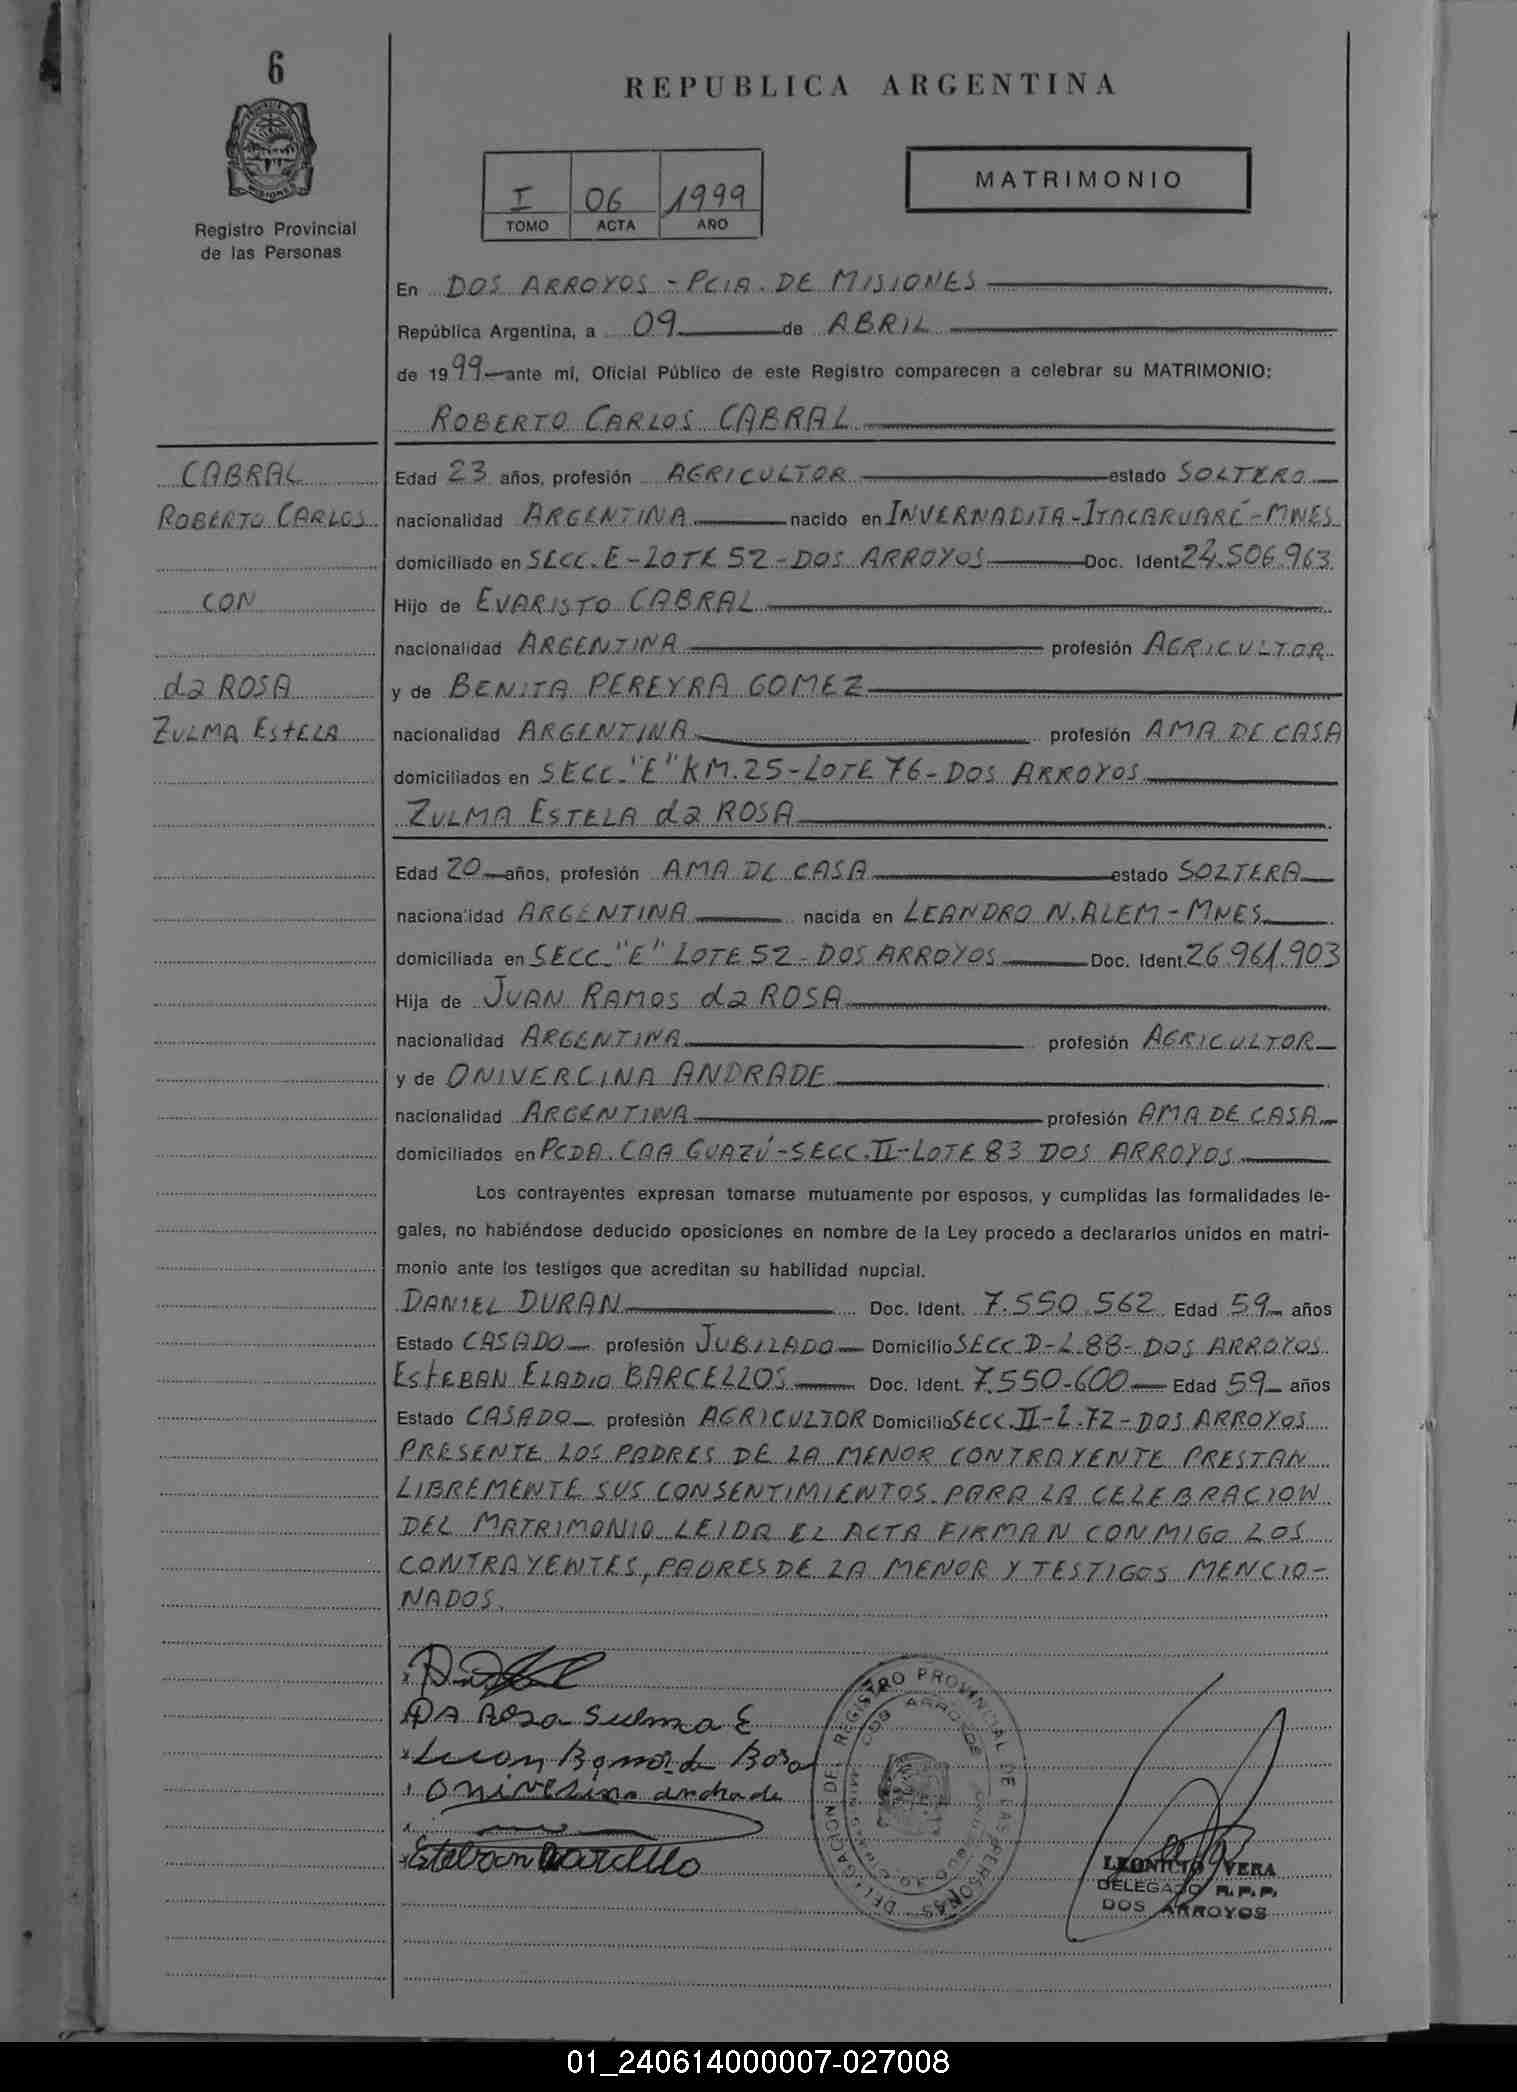 6
REPUBLICA ARGENTINA
MATRIMONIO
I 06 1999
TOMO ACTA AÑO
Registro Provincial
de las Personas
En DOS ARROYOS - PCIA. DE MISIONES
República Argentina, a 09 de ABRIL
de 1999 ante mí, Oficial Público de este Registro comparecen a celebrar su MATRIMONIO:
ROBERTO CARLOS CABRAL
CABRAL
ROBERTO CARLOS
CON
da ROSA
ZULMA EStELA
Edad 23 años, profesión AGRICULTOR estado SOLTERO
nacionalidad ARGENTINA nacido en INVERNADITA-ITACARUARÉ-MNES
domiciliado en SECC. E-LOTE 52-DOS ARROYOS Doc. Ident 24.506.963
Hijo de EVARISTO CABRAL
nacionalidad ARGENTINA profesión AGRICULTOR
y de BENITA PEREYRA GOMEZ
nacionalidad ARGENTINA profesión AMA DE CASA
domiciliados en SECC. "E" KM.25-LOTE 76-DOS ARROYOS
ZULMA ESTELA da ROSA
Edad 20 años, profesión AMA DE CASA estado SOLTERA
nacionalidad ARGENTINA nacida en LEANDRO N. ALEM-MNES
domiciliada en SECC. "E" LOTE 52-DOS ARROYOS Doc. Ident 26.961.903
Hija de JUAN RAMOS da ROSA
nacionalidad ARGENTINA profesión AGRICULTOR
y de ONIVERCINA ANDRADE
nacionalidad ARGENTINA profesión AMA DE CASA
domiciliados en PCDA. CAA GUAZÚ-SECC. II-LOTE 83 DOS ARROYOS
Los contrayentes expresan tomarse mutuamente por esposos, y cumplidas las formalidades le-
gales, no habiéndose deducido oposiciones en nombre de la Ley procedo a declararlos unidos en matri-
monio ante los testigos que acreditan su habilidad nupcial.
DANIEL DURAN Doc. Ident. 7.550.562 Edad 59 años
Estado CASADO profesión JUBILADO Domicilio SECC. D-L.88-DOS ARROYOS
EStEBAN ELADIO BARCELLOS Doc. Ident. 7.550.600 Edad 59 años
Estado CASADO profesión AGRICULTOR Domicilio SECC. II-L.72-DOS ARROYOS
PRESENTE LOS PADRES DE LA MENOR CONTRAYENTE PRESTAN
LIBREMENTE SUS CONSENTIMIENTOS PARA LA CELEBRACION
DEL MATRIMONIO LEIDA EL ACTA FIRMAN CONMIGO LOS
CONTRAYENTES, PADRES DE LA MENOR Y TESTIGOS MENCIO-
NADOS.
DA ROSA Sulma E
Onivesina andrade
Esteban Barcello
DELEGACION DE REGISTRO PROVINCIAL DE LAS PERSONAS
DOS ARROYOS
LEONICIO VERA
DELEGADO R.P.P.
DOS ARROYOS
01_240614000007-027008